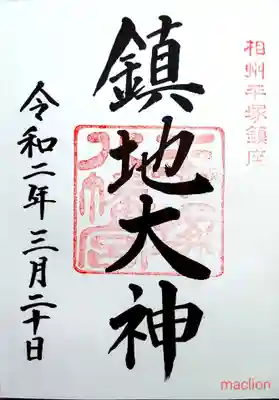 相州平塚鎮座
鎮地大神
令和二年三月二十日
maclion